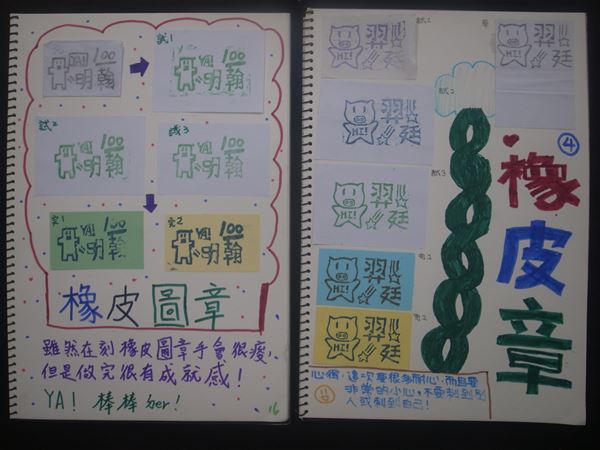 YA! 100
明翰
試1
YA! 100
明翰
試2
YA! 100
明翰
試3
YA! 100
明翰
完1
YA! 100
明翰
完2
YA! 100
明翰
橡皮圖章
雖然在刻橡皮圖章手會很痠,
但是做完很有成就感!
YA! 棒棒ㄉer!
16
草
羿廷
HI!
試1
羿廷
HI!
試2
羿廷
HI!
試3
羿廷
HI!
完1
羿廷
HI!
完2
羿廷
HI!
4
橡皮章
心得:這次要很多耐心,而且要
非常的小心,不要刺到別
人或刺到自己!